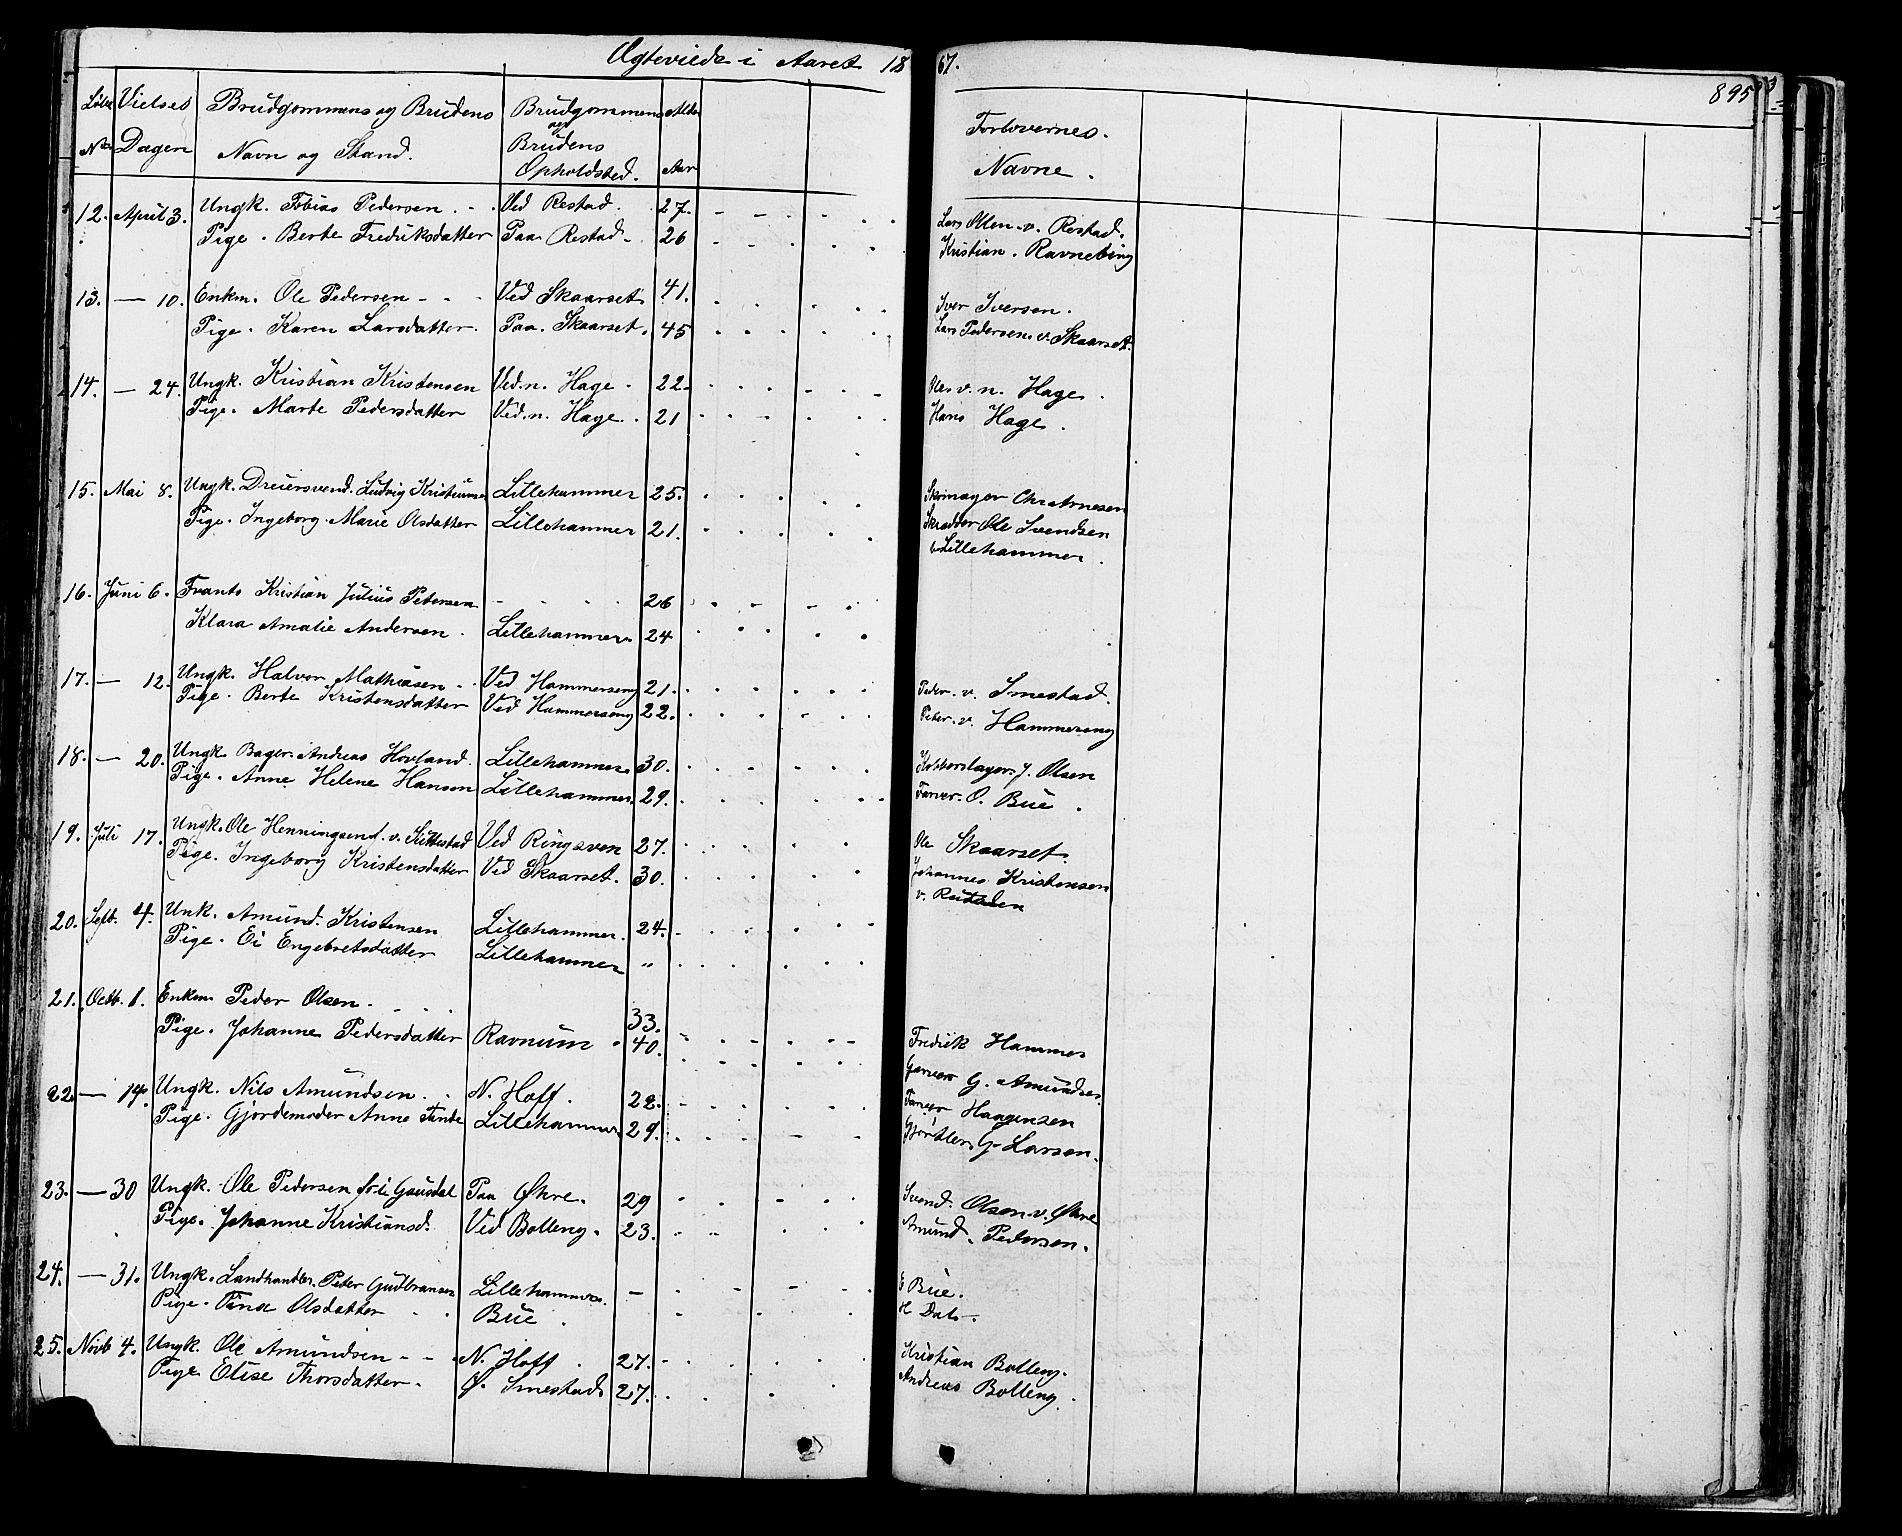 Ægteviede i Aaret 1867.
895
Løbe Vielses Brudgommens og Brudens Brudgommens Alder
og
No Dagen Navn og Stand. Brudens
Opholdsted. Aar
Forlovernes.
Navne.
12. April 3. Ungk. Tobias Pedersen. - - Ved Restad. 27. Lars Olsen. v. Restad.
Pige. Berte Fredriksdatter Paa Restad. 26 Kristian. Ravnebing
13. — 10. Enkm. Ole Pedersen - - - Ved Skaarset 41. Iver Iversen.
Pige. Karen Larsdatter. Paa. Skaarset. 45 Lars Pedersen. v. Skaarset.
14. — 24. Ungk. Kristian Kristensen Ved. n. Hage. 22. v. n. Hage.
Pige. Marte Pedersdatter Ved. n. Hage. 21 Hans Hage.
15. Mai 8. Ungk. Dreiersvend. Ludvig Kristiansen Lillehammer 25. Chr Arnesen
Pige. Ingeborg. Marie Olsdatter Lillehammer 21. Skrædder Ole Svendsen
Lillehammer.
16. Juni 6. Frants Kristian Julius Petersen - - - - 26
Klara Amalie Andersen. Lillehammer. 24
17. — 12. Ungk. Halvor Mathiasen - - Ved Hammerseng 21. Peder. v. Smestad.
Pige. Berte Kristensdatter Ved Hammerseng 22. Peter. v. Hammerseng
18. — 20. Ungk. Bager. Andreas Hovland. Lillehammer 30. Kobberslager. J. Olsen
Pige. Anne Helene Hansen Lillehammer. 29. Farver. O. Bue.
19. Juli 17. Ungk. Ole Henningsend. v. Kittestad Ved Ringsven 27. Ole Skaarset.
Pige. Ingeborg Kristensdatter Ved Skaarset. 30. Johannes Kristensen
v.
20. Septb. 4. Unk. Amund. Kristensen Lillehammer. 24.
Pige. Ei Engebretsdatter Lillehammer "
21. Octb. 1. Enkm Peder Olsen. - - - 33.
Pige. Johanne Pedersdatter Ravnum 40. Fredrik Hammer
22. — 14. Ungk. Nils Amundsen. - - N. Hoff. 22. Garver G. Amundsen.
Pige. Gjordemoder Anne Tande Lillehammer 29. Farver Haagensen
Gjørtler. G. Larsen.
23. — 30 Ungk. Ole Pedersen fr i Gausdal Paa Øhre. 29 Svend. Olsen. v. Øhre
Pige. Johanne Kristiansd. Ved Bolleng. 23. Amund. Pedersen.
24. — 31. Ungk. Landhandler. Peter Gudbransen Lillehammer. - E Bue.
Pige. Tina Olsdatter - - Bue. H Dal.
25. Novb 4. Ungk. Ole Amundsen - - N. Hoff. 27. Kristian Bolleng.
Pige Elise Thorsdatter. Ø. Smestad 27. Andreas Bolleng.